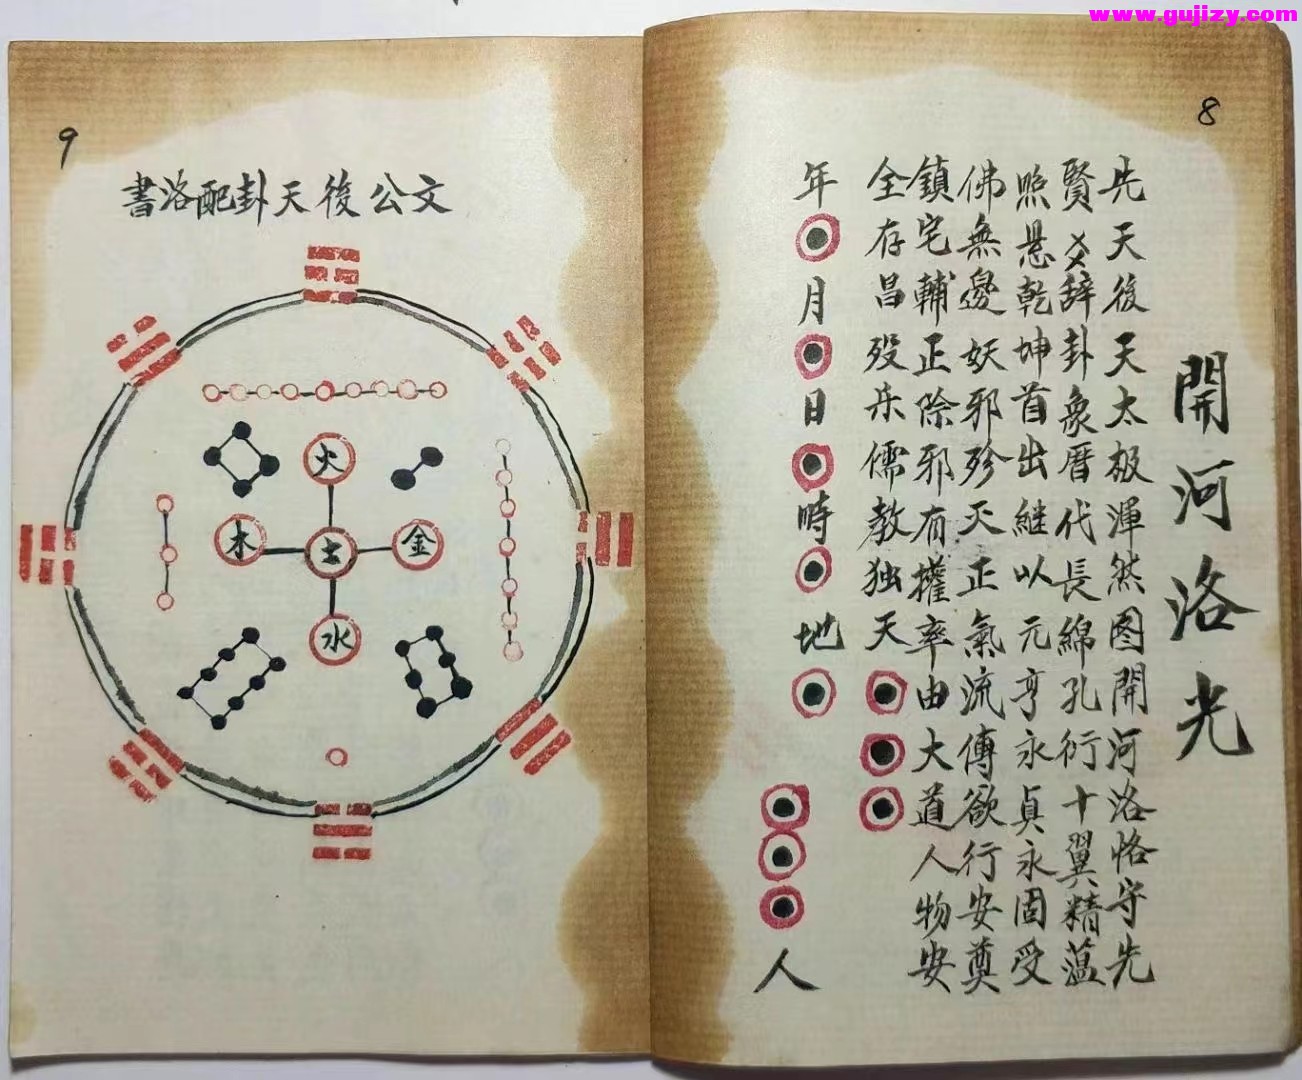 www.gujizy.com
8
開河洛光
先天後天太极渾然图開河洛恪守先
賢爻辭卦象厝代長綿孔衍十翼精蕰
照悬乾坤首出継以元亨永貞永固受
佛無邊妖邪殄灭正氣流傳欲行安奠
鎮宅輔正除邪有權率由大道人物安
全存昌殁乐儒教独天
年 月 日 時 地
人
9
文公後天卦配洛書
火
木 土 金
水